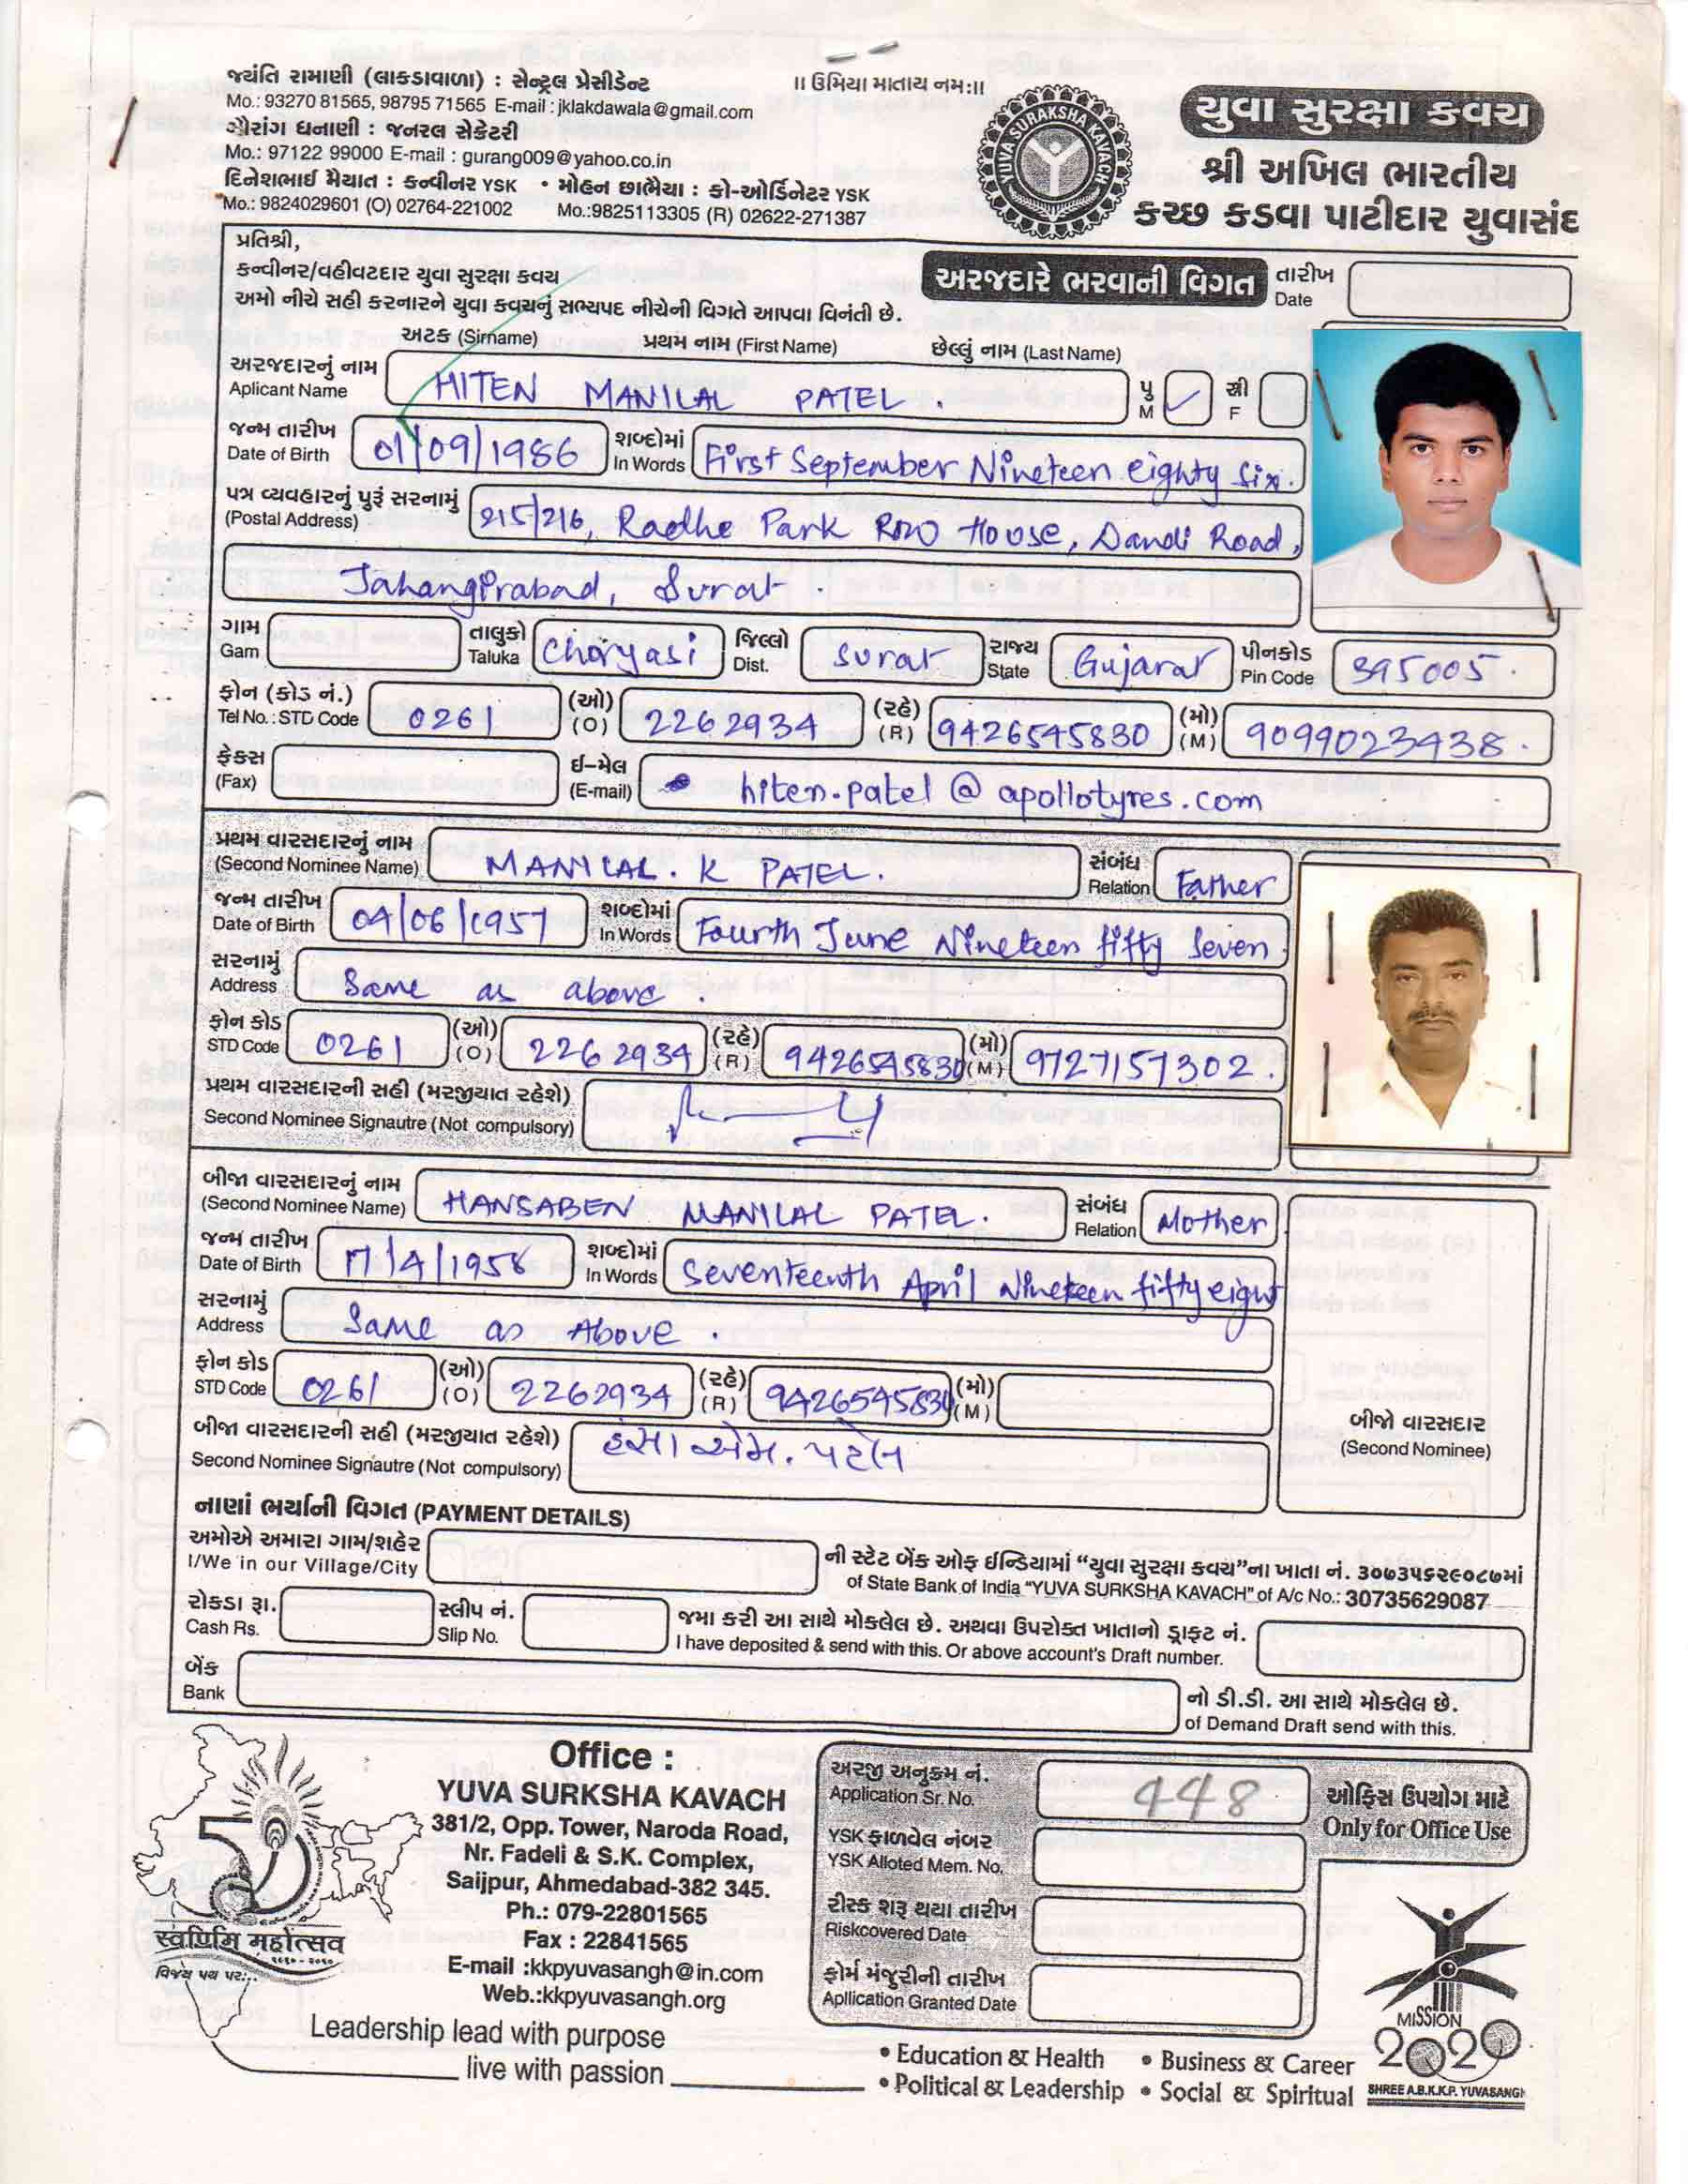 જયંતિ રામાણી (લાકડાવાળા) : સેન્ટ્રલ પ્રેસીડેન્ટ
Mo.: 93270 81565, 98795 71565 E-mail : jklakdawala@gmail.com
ગૌરાંગ ધનાણી : જનરલ સેક્રેટરી
Mo.: 97122 99000 E-mail : gurang009@yahoo.co.in
દિનેશભાઈ મૈયાત : કન્વીનર YSK • મોહન છાભૈયા : કો-ઓર્ડિનેટર YSK
Mo.: 9824029601 (O) 02764-221002 Mo.:9825113305 (R) 02622-271387
॥ ઉમિયા માતાય નમઃ॥
YUVA SURAKSHA KAVACH
યુવા સુરક્ષા કવચ
શ્રી અખિલ ભારતીય
કચ્છ કડવા પાટીદાર યુવાસંઘ
પ્રતિશ્રી,
કન્વીનર/વહીવટદાર યુવા સુરક્ષા કવચ
અમો નીચે સહી કરનારને યુવા કવચનું સભ્યપદ નીચેની વિગતે આપવા વિનંતી છે.
અરજદારે ભરવાની વિગત
તારીખ
Date
અટક (Sirname) પ્રથમ નામ (First Name) છેલ્લું નામ (Last Name)
અરજદારનું નામ
Aplicant Name HITEN MANILAL PATEL. પુ M ✓ સ્રી F
જન્મ તારીખ
Date of Birth 01/09/1986 શબ્દોમાં In Words First September Nineteen eighty six.
પત્ર વ્યવહારનું પુરૂં સરનામું
(Postal Address) 215/216, Radhe Park Row House, Dandi Road,
Jahangirabad, Surat.
ગામ Gam તાલુકો Taluka Choryasi જિલ્લો Dist. Surat રાજ્ય State Gujarat પીનકોડ Pin Code 395005.
ફોન (કોડ નં.) Tel No. : STD Code 0261 (ઓ) (O) 2262934 (રહે) (R) 9426545830 (મો) (M) 9099023438.
ફેકસ (Fax) ઈ-મેલ (E-mail) hiten.patel@apollotyres.com
પ્રથમ વારસદારનું નામ
(Second Nominee Name) MANILAL. K PATEL. સંબંધ Relation Father
જન્મ તારીખ
Date of Birth 04/06/1957 શબ્દોમાં In Words Fourth June Nineteen fifty Seven
સરનામું
Address Same as above.
ફોન કોડ STD Code 0261 (ઓ) (O) 2262934 (રહે) (R) 9426545830 (મો) (M) 9727157302.
પ્રથમ વારસદારની સહી (મરજીયાત રહેશે)
Second Nominee Signautre (Not compulsory)
બીજા વારસદારનું નામ
(Second Nominee Name) HANSABEN MANILAL PATEL. સંબંધ Relation Mother
જન્મ તારીખ
Date of Birth 17/4/1958 શબ્દોમાં In Words Seventeenth April Nineteen fifty eight
સરનામું
Address Same as Above.
ફોન કોડ STD Code 0261 (ઓ) (O) 2262934 (રહે) (R) 9426545830 (મો) (M)
બીજા વારસદારની સહી (મરજીયાત રહેશે)
Second Nominee Signautre (Not compulsory) હંસા એમ. પટેલ
બીજો વારસદાર
(Second Nominee)
નાણાં ભર્યાની વિગત (PAYMENT DETAILS)
અમોએ અમારા ગામ/શહેર
I/We in our Village/City
ની સ્ટેટ બેંક ઓફ ઈન્ડિયામાં “યુવા સુરક્ષા કવચ”ના ખાતા નં. ૩૦૭૩૫૬૨૯૦૮૭માં
of State Bank of India “YUVA SURKSHA KAVACH” of A/c No.: 30735629087
રોકડા રૂા. સ્લીપ નં. જમા કરી આ સાથે મોકલેલ છે. અથવા ઉપરોક્ત ખાતાનો ડ્રાફ્ટ નં.
Cash Rs. Slip No. I have deposited & send with this. Or above account's Draft number.
બેંક
Bank
નો ડી.ડી. આ સાથે મોકલેલ છે.
of Demand Draft send with this.
स्वर्णिम महोत्सव
Office :
YUVA SURKSHA KAVACH
381/2, Opp. Tower, Naroda Road,
Nr. Fadeli & S.K. Complex,
Saijpur, Ahmedabad-382 345.
Ph.: 079-22801565
Fax : 22841565
E-mail :kkpyuvasangh@in.com
Web.:kkpyuvasangh.org
Leadership lead with purpose
live with passion
અરજી અનુક્રમ નં.
Application Sr. No. 448
YSK ફાળવેલ નંબર
YSK Alloted Mem. No.
રીસ્ક શરૂ થયા તારીખ
Riskcovered Date
ફોર્મ મંજુરીની તારીખ
Apllication Granted Date
ઓફિસ ઉપયોગ માટે
Only for Office Use
• Education & Health • Business & Career
• Political & Leadership • Social & Spiritual
MISSION
2020
SHREE A.B.K.K.P. YUVASANGH